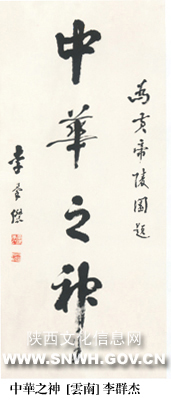 中華之神
為黄帝陵園題
李群傑
陕西文化信息网
WWW.SNWH.GOV.CN
中華之神 [雲南] 李群杰